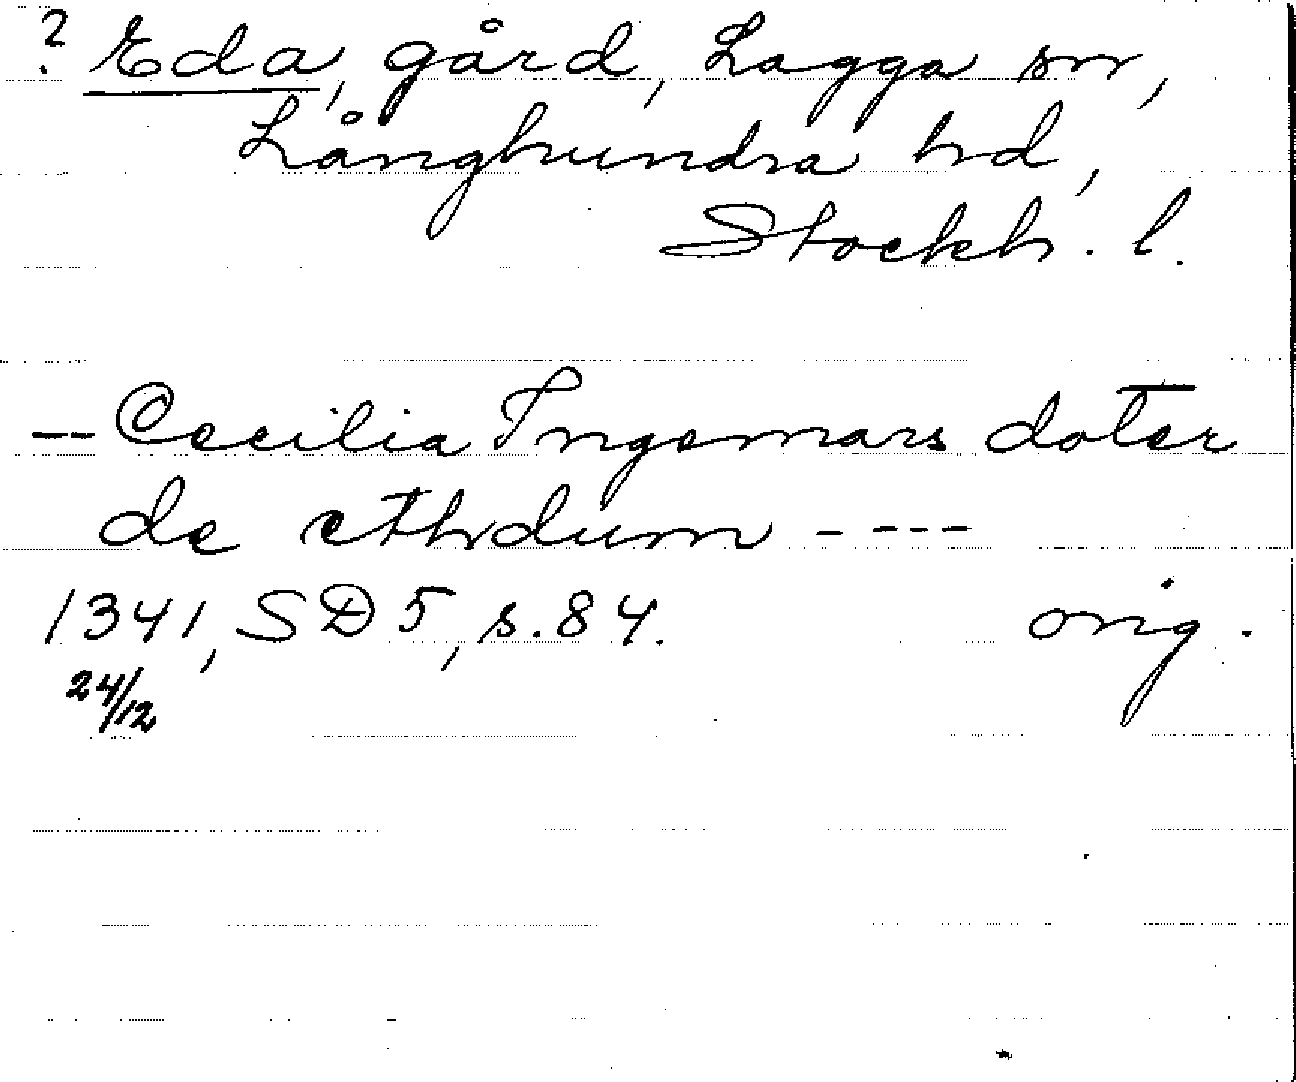 ? Eda, gård, Lagga sn,
Långhundra hd,
Stockh. l.
-- Cecilia Ingemars doter
de ethdum ----
1341, SD 5, s. 84. orig.
24/12